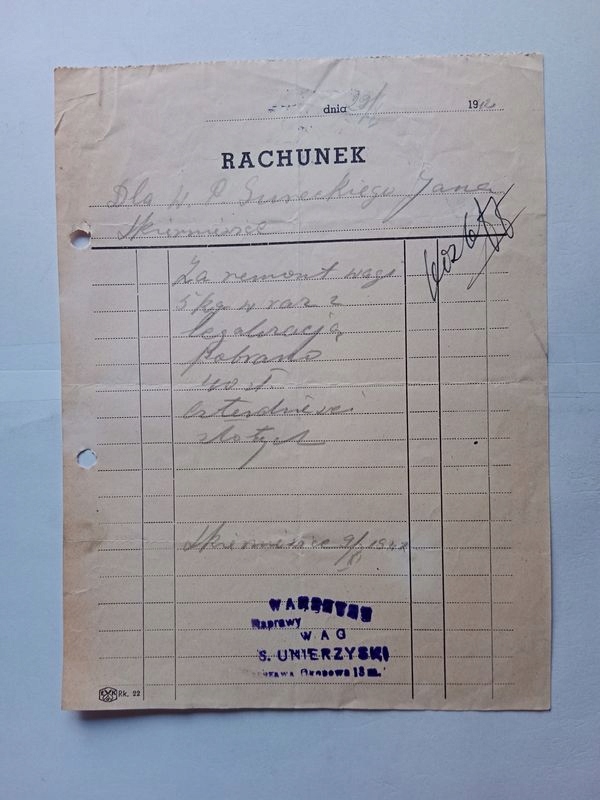 dnia 29/V 1942
RACHUNEK
Dla W P Gureckiego Jana
Skierniewice
Za remont wagi
5 kg w raz z
legalizacją
Pobrano
40 zł
czterdzieści
złotych
Skierniewice 9/ 1942
WARSZTAT
Naprawy
WAG
S. UNIERZYSKI
Warszawa 18 m.
Rk. 22